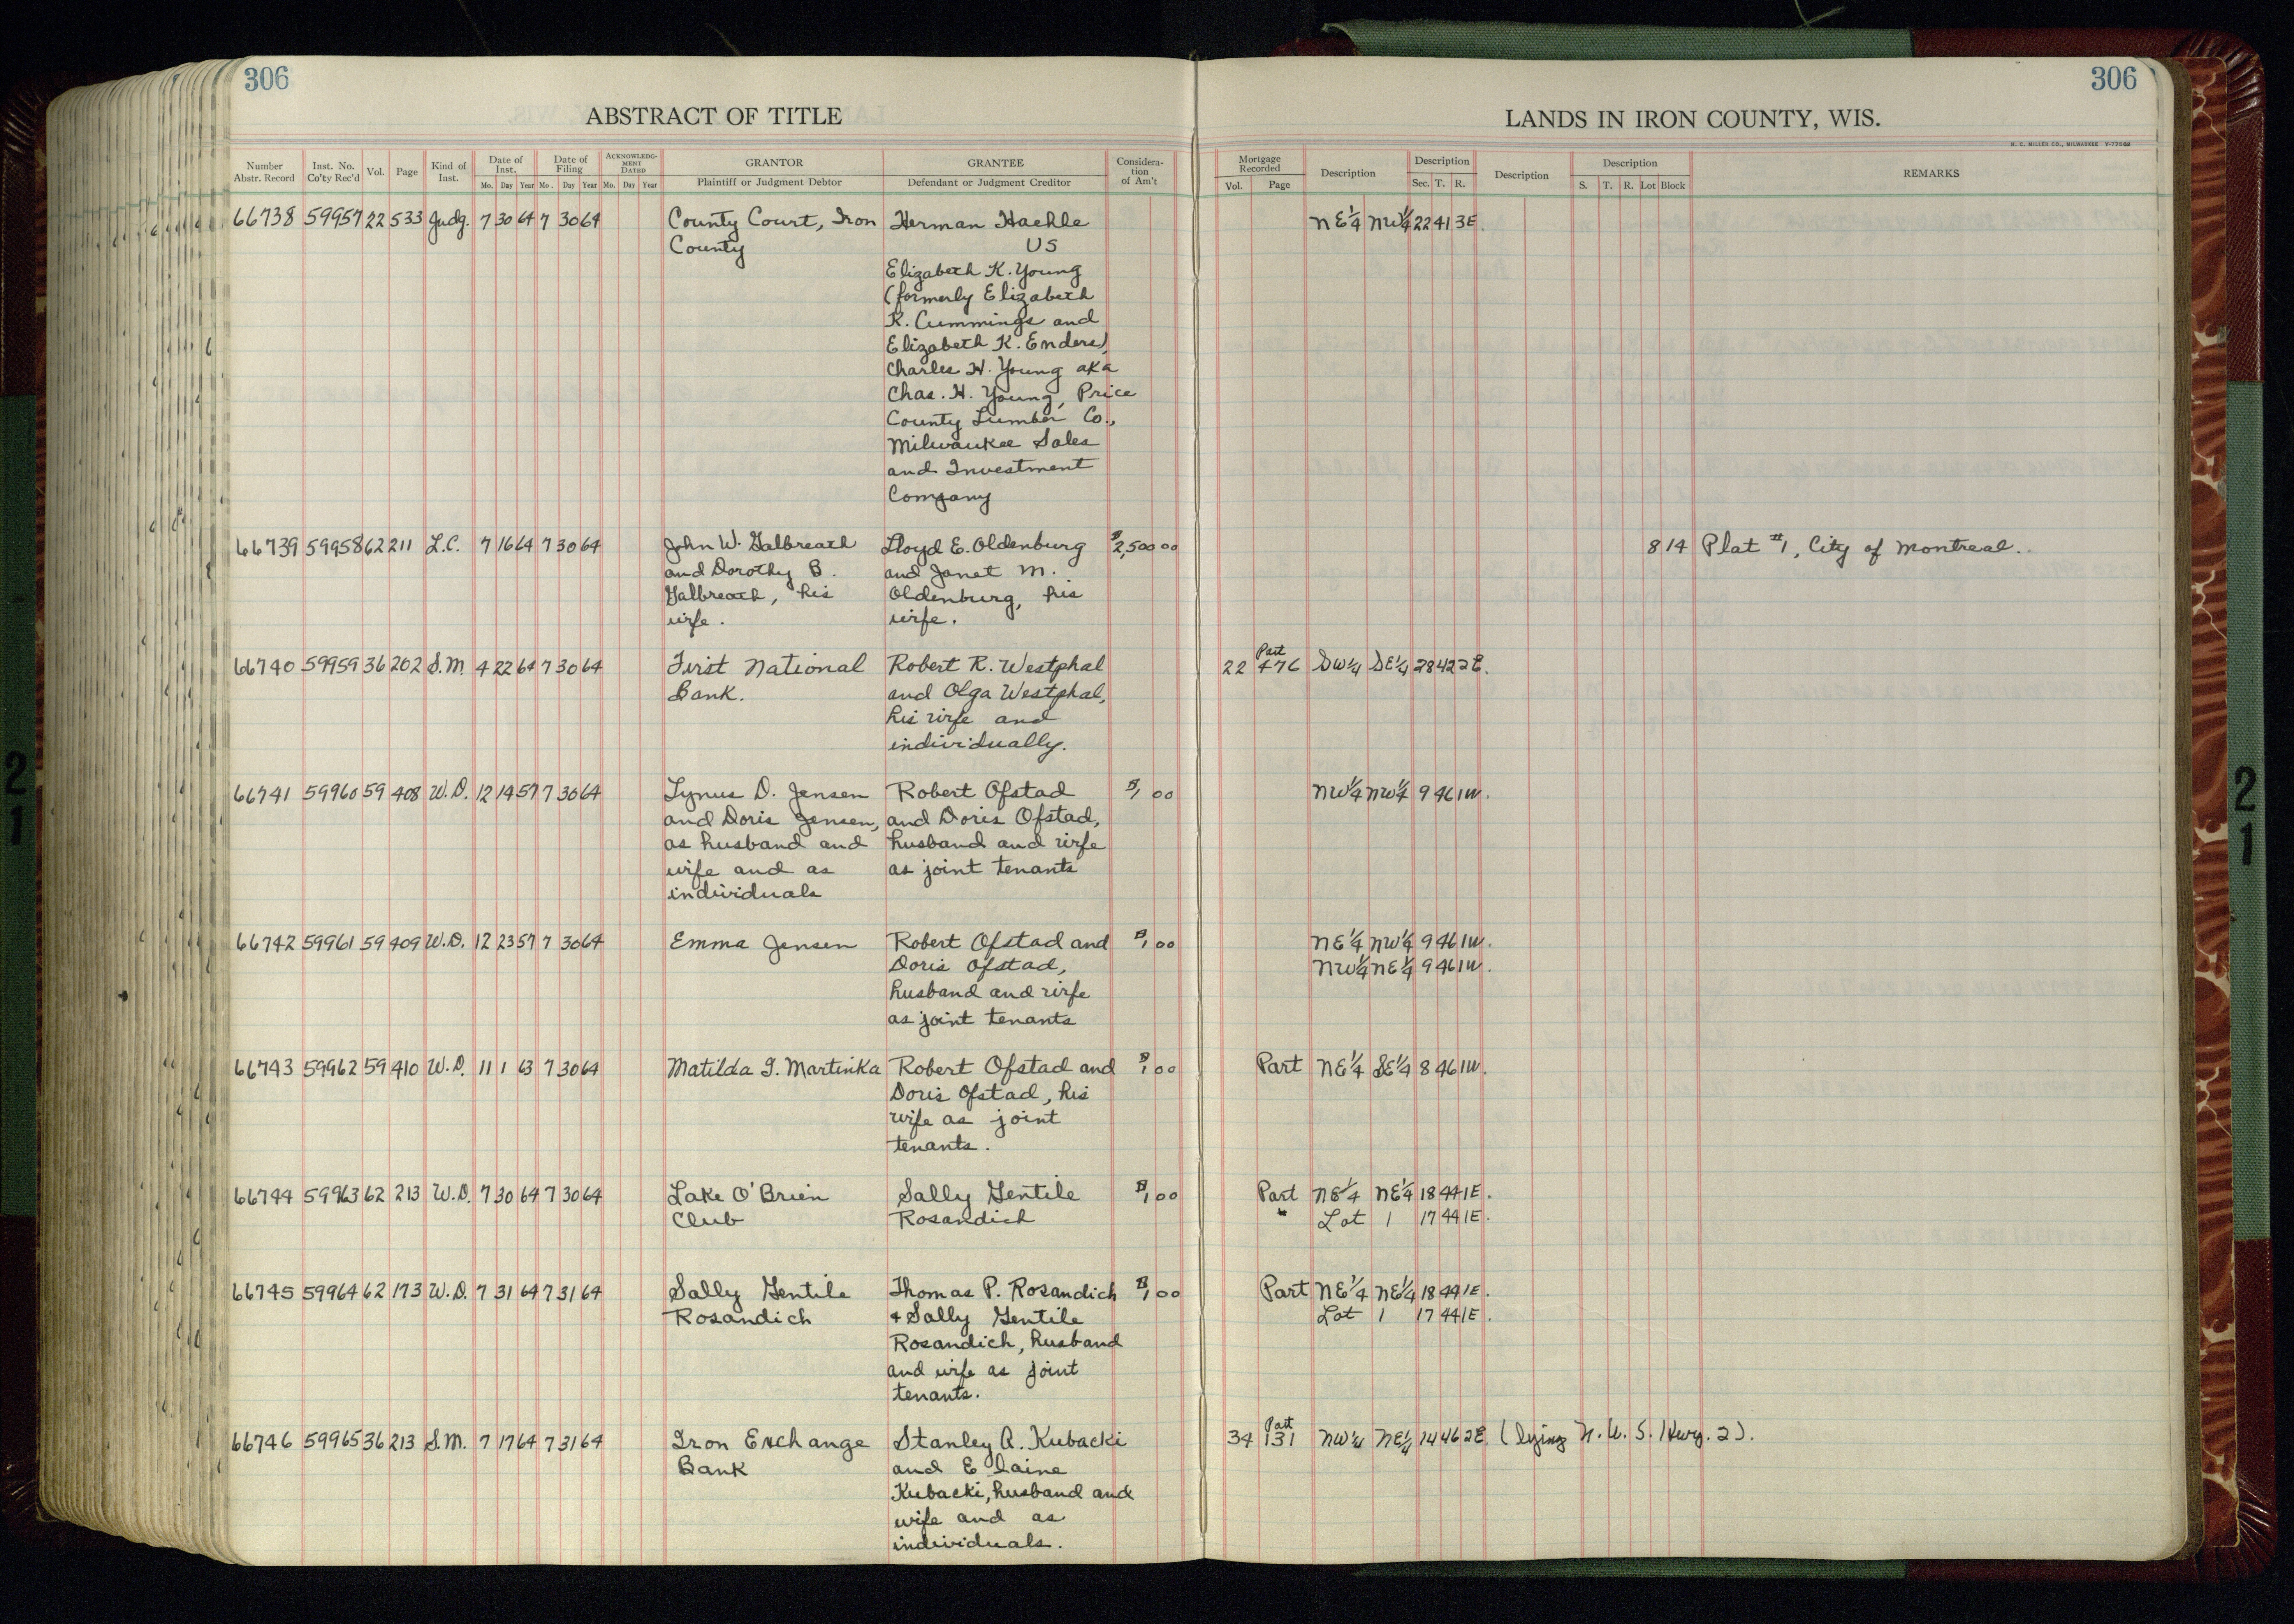 306
306
ABSTRACT OF TITLE
LANDS IN IRON COUNTY, WIS.
H. C. MILLER CO., MILWAUKEE
Number Abstr. Record | Inst. No. Co'ty Rec'd | Vol. | Page | Kind of Inst. | Date of Inst. Mo. Day Year | Date of Filing Mo. Day Year | ACKNOWLEDGMENT DATED Mo. Day Year | GRANTOR Plaintiff or Judgment Debtor | GRANTEE Defendant or Judgment Creditor | Consideration of Am't | Mortgage Recorded Vol. Page | Description | Description Sec. T. R. | Description | Description S. T. R. Lot Block | REMARKS
66738 59957 22 533 Judg. 7 30 64 7 30 64 County Court, Iron Herman Haehle NE1/4 NW1/4 22 41 3E.
County US
Elizabeth K. Young
(formerly Elizabeth
K. Cummings and
Elizabeth K. Enders),
Charles H. Young aka
Chas. H. Young, Price
County Lumber Co.,
Milwaukee Sales
and Investment
Company
66739 59958 62 211 L.C. 7 16 64 7 30 64 John W. Galbreath Lloyd E. Oldenburg $2,500 00 8 14 Plat #1, City of Montreal.
and Dorothy B. and Janet M.
Galbreath, his Oldenburg, his
wife. wife.
Part
66740 59959 36 202 S.M. 4 22 64 7 30 64 First National Robert R. Westphal 22 476 SW1/4 SE1/4 28 42 2E.
Bank. and Olga Westphal,
his wife and
individually.
66741 59960 59 408 W.D. 12 14 57 7 30 64 Lynus D. Jensen Robert Ofstad $1 00 NW1/4 NW1/4 9 46 1W.
and Doris Jensen, and Doris Ofstad,
as husband and husband and wife
wife and as as joint tenants
individuals
66742 59961 59 409 W.D. 12 23 57 7 30 64 Emma Jensen Robert Ofstad and $1 00 NE1/4 NW1/4 9 46 1W.
Doris Ofstad, NW1/4 NE1/4 9 46 1W.
husband and wife
as joint tenants
66743 59962 59 410 W.D. 11 1 63 7 30 64 Matilda G. Martinka Robert Ofstad and $1 00 Part NE1/4 SE1/4 8 46 1W.
Doris Ofstad, his
wife as joint
tenants.
66744 59963 62 213 W.D. 7 30 64 7 30 64 Lake O'Brien Sally Gentile $1 00 Part NE1/4 NE1/4 18 44 1E.
Club Rosandich " Lot 1 17 44 1E.
66745 59964 62 173 W.D. 7 31 64 7 31 64 Sally Gentile Thomas P. Rosandich $1 00 Part NE1/4 NE1/4 18 44 1E.
Rosandich + Sally Gentile Lot 1 17 44 1E.
Rosandich, husband
and wife as joint
tenants.
Part
66746 59965 36 213 S.M. 7 17 64 7 31 64 Iron Exchange Stanley A. Kubacki 34 131 NW1/4 NE1/4 14 46 2E. (lying N. U. S. Hwy. 2).
Bank and Elaine
Kubacki, husband and
wife and as
individuals.
21
21